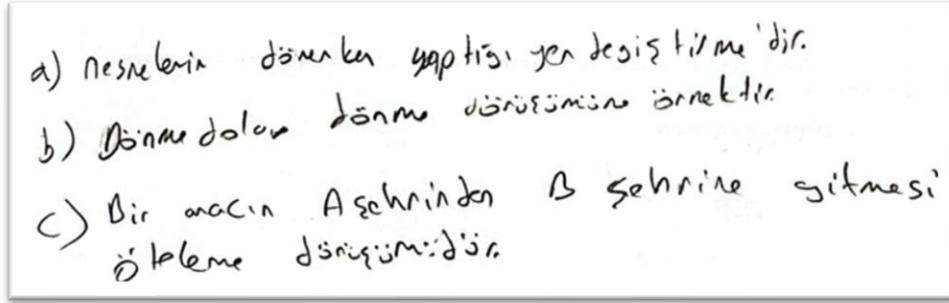 a) nesnelerin dönerken yaptığı yer değiştirme'dir.
b) Dönme dolap dönme dönüşümüne örnektir.
c) Bir aracın A şehrinden B şehrine gitmesi
öteleme dönüşümüdür.